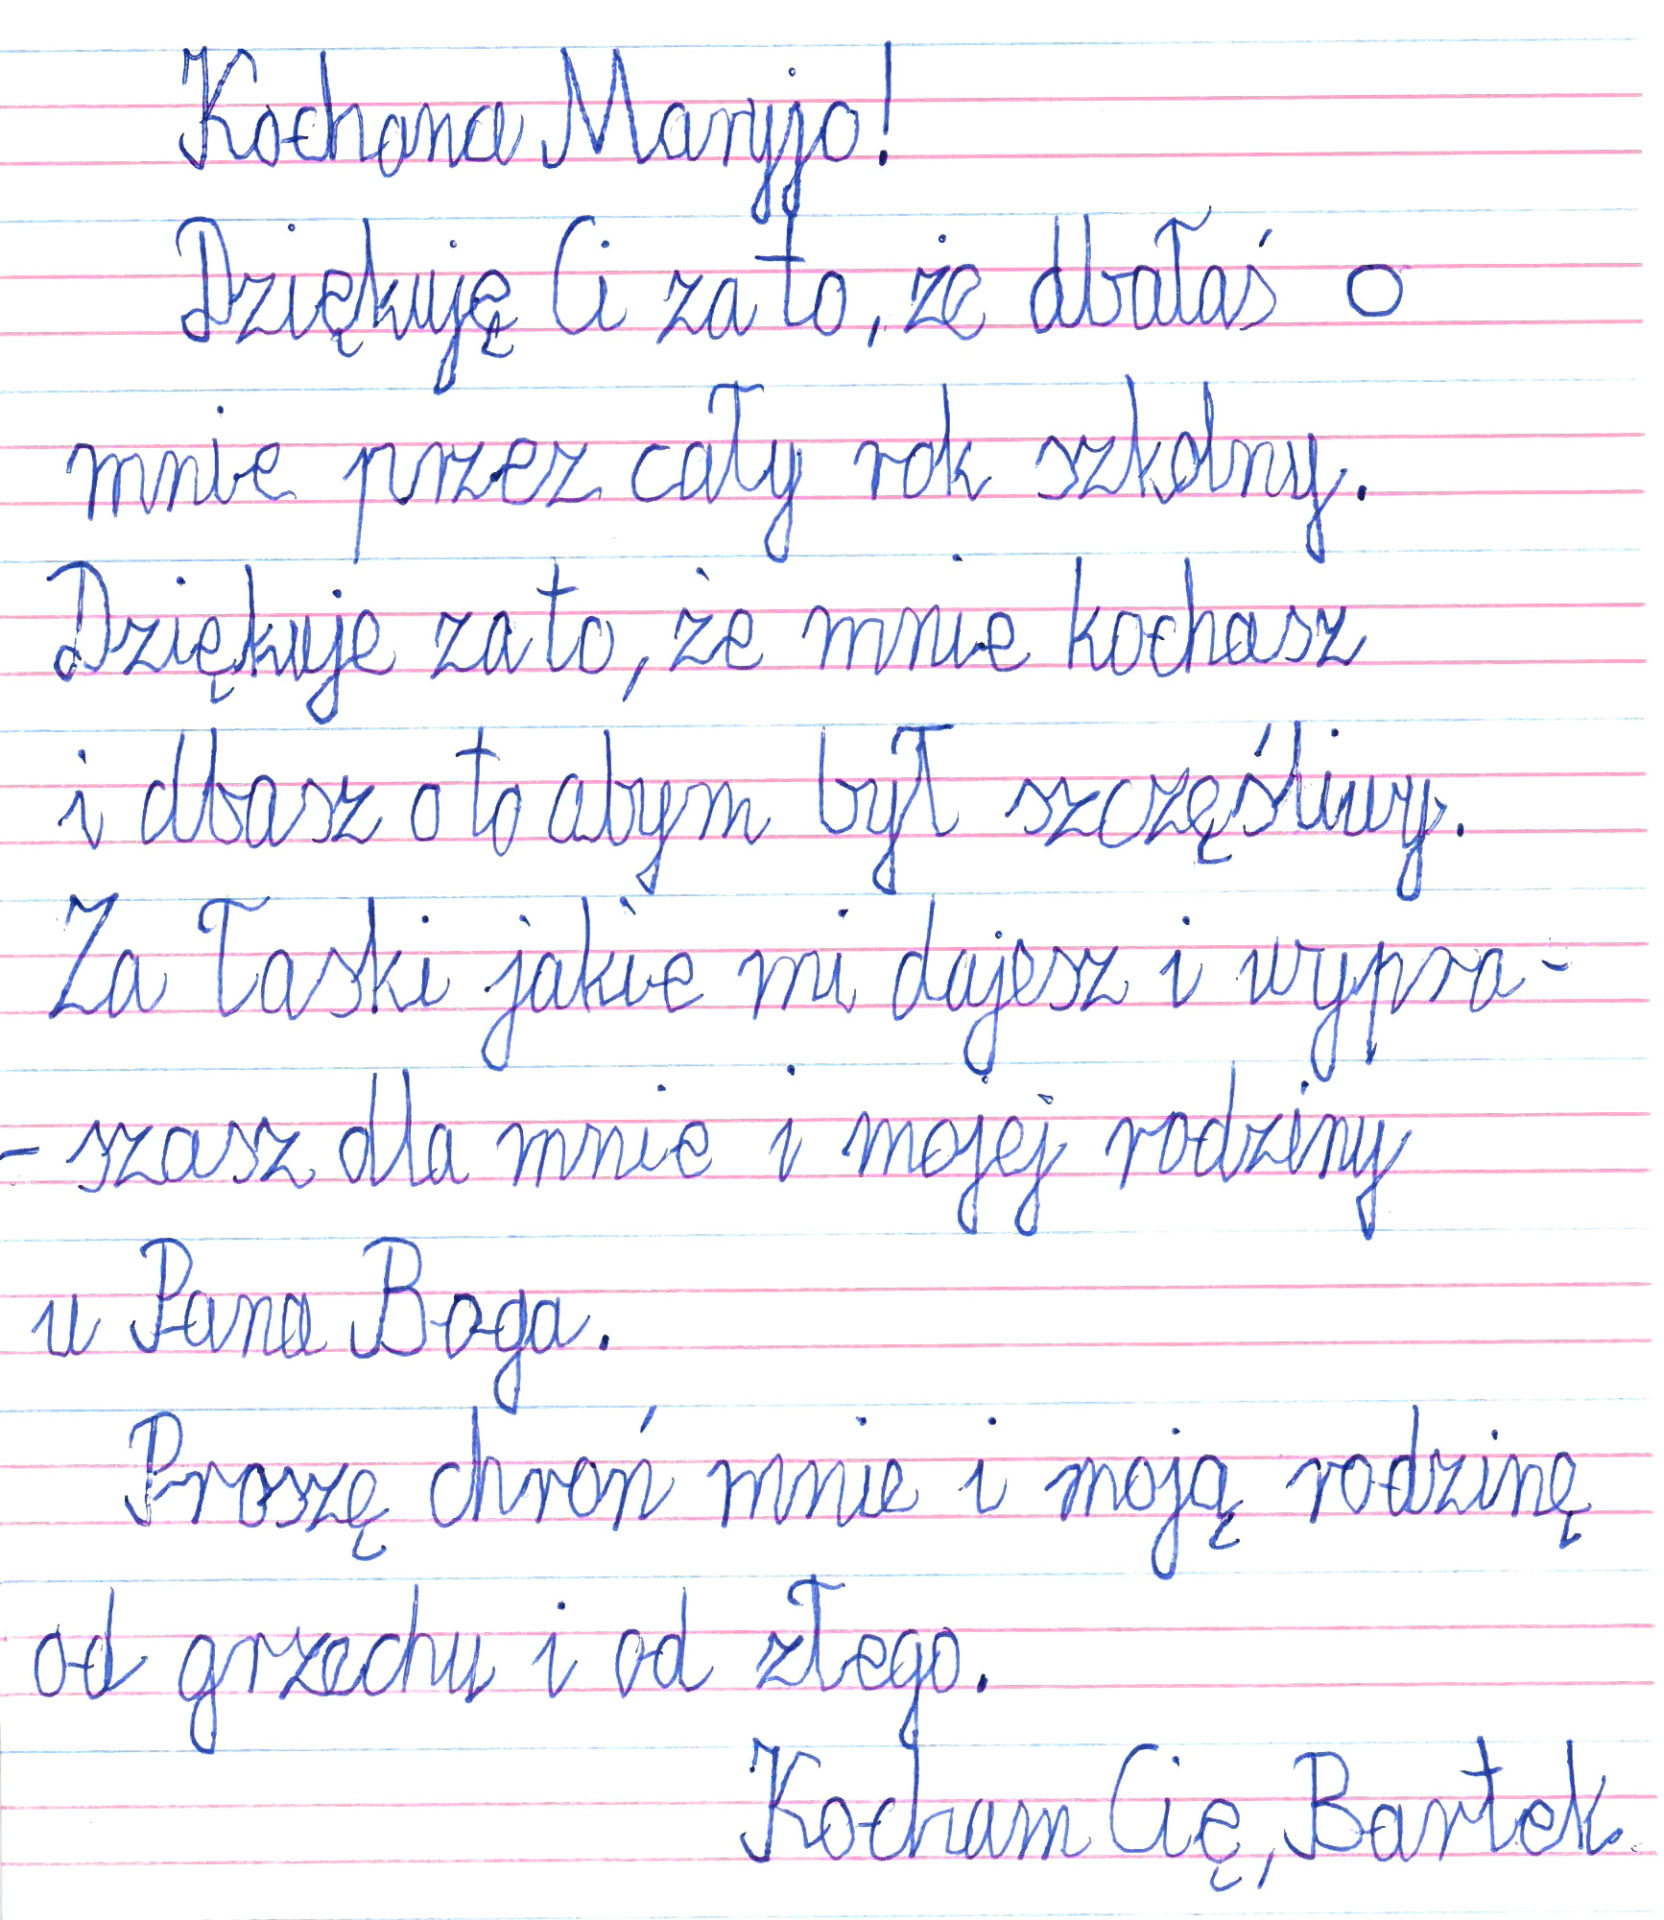 Kochana Maryjo!
Dziękuję Ci za to, że dbałaś o
mnie przez cały rok szkolny.
Dziękuje za to, że mnie kochasz
i dbasz o to abym był szczęśliwy.
Za łaski jakie mi dajesz i wypra-
- szasz dla mnie i mojej rodziny
u Pana Boga.
Proszę chroń mnie i moją rodzinę
od grzechu i od złego.
Kocham Cię, Bartek.